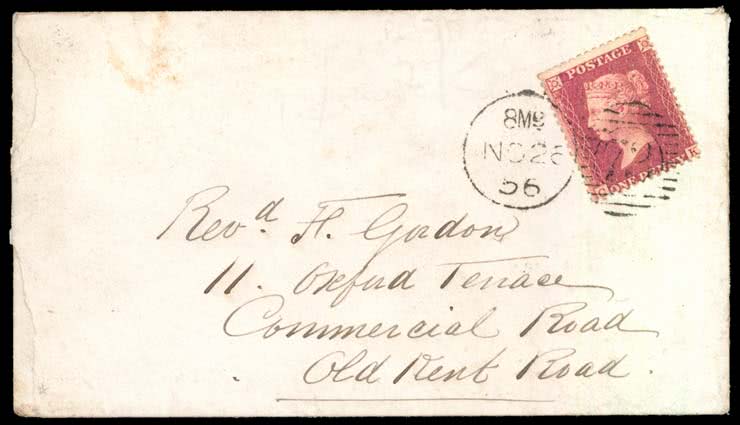 POSTAGE
ONE PENNY
K
8M9
NO 26
56
Revd. H. Gordon
11. Oxford Terrace
Commercial Road
Old Kent Road.